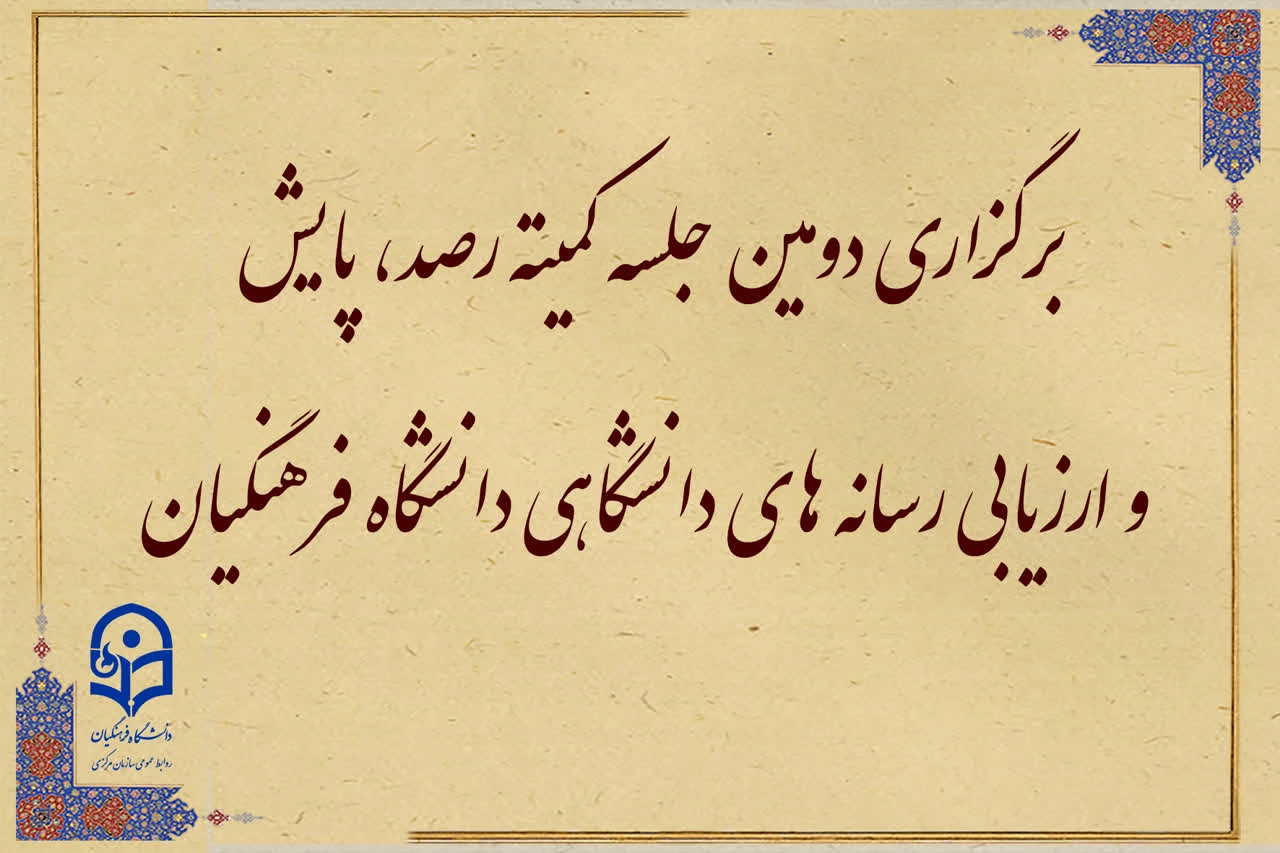 برگزاری دومین جلسه کمیته رصد، پایش
و ارزیابی رسانه های دانشگاهی دانشگاه فرهنگیان
دانشگاه فرهنگیان
روابط عمومی سازمان مرکزی